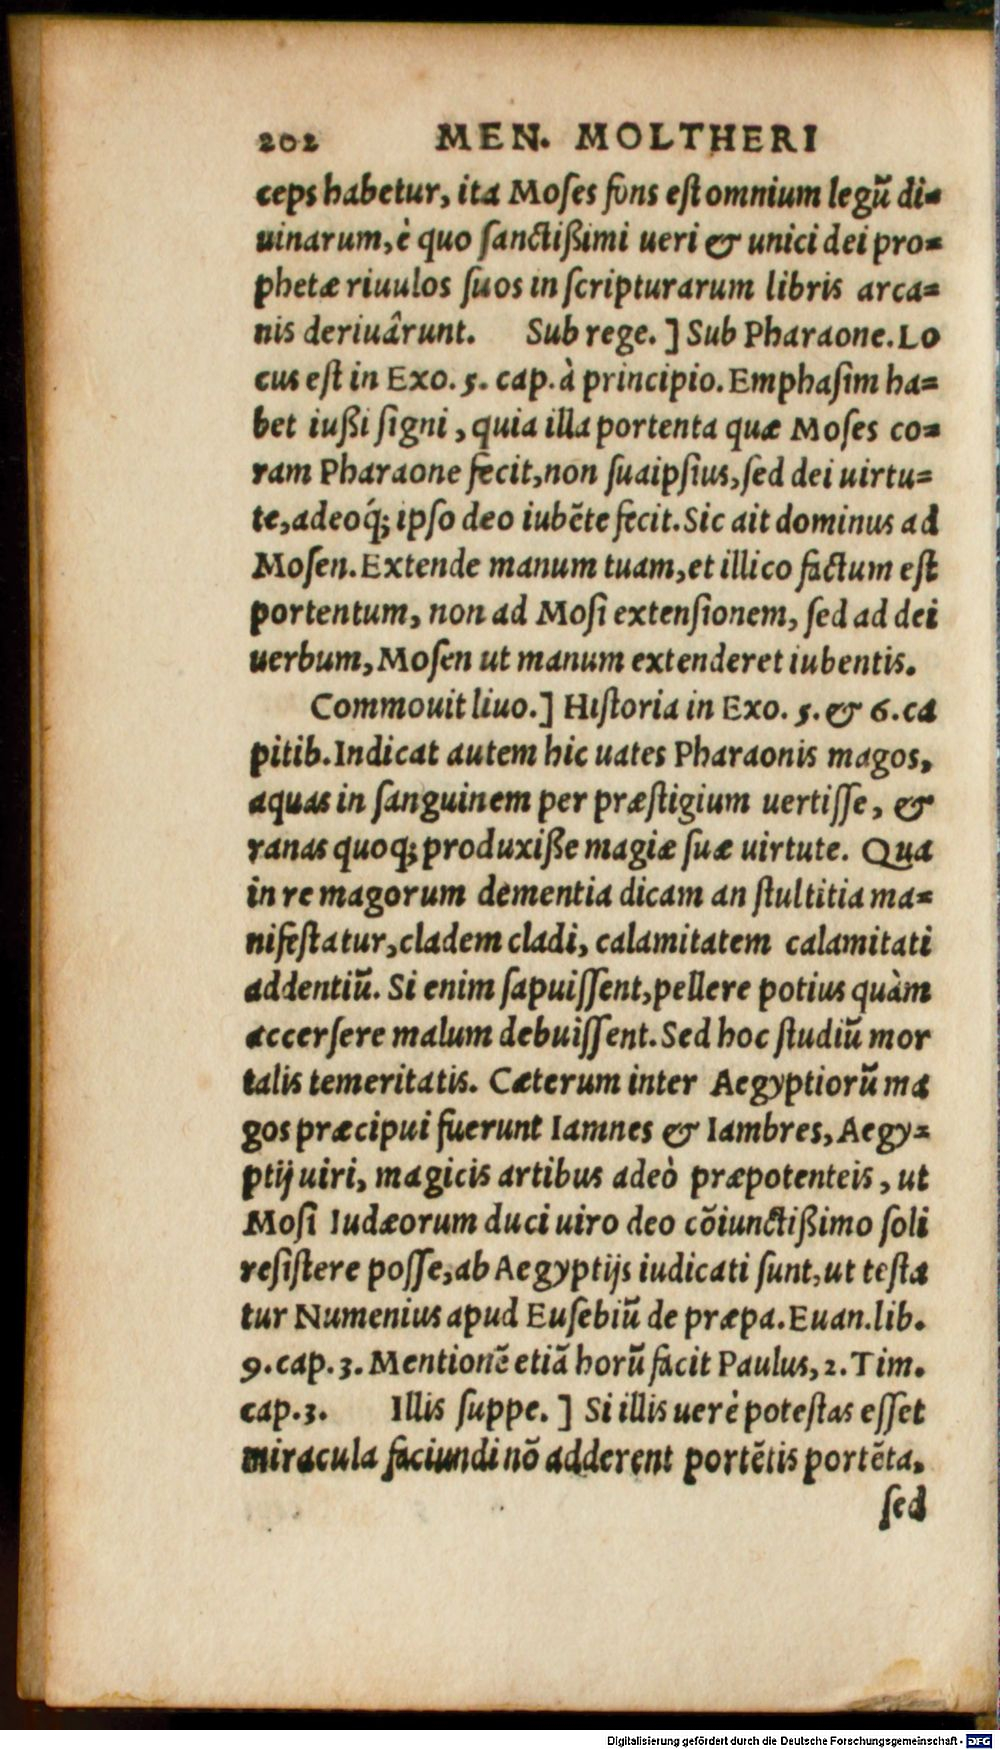 202 MEN. MOLTHERI
ceps habetur, ita Moſes fons eſt omnium legũ di-
uinarum, è quo ſanctißimi ueri & unici dei pro-
phetæ riuulos ſuos in ſcripturarum libris arca-
nis deriuârunt. Sub rege. ] Sub Pharaone. Lo
cus eſt in Exo. 5. cap. à principio. Emphaſim ha-
bet iußi ſigni, quia illa portenta quæ Moſes co-
ram Pharaone fecit, non ſuaipſius, ſed dei uirtu-
te, adeoq́; ipſo deo iubẽte fecit. Sic ait dominus ad
Moſen. Extende manum tuam, et illico factum eſt
portentum, non ad Moſi extenſionem, ſed ad dei
uerbum, Moſen ut manum extenderet iubentis.
Commouit liuo. ] Hiſtoria in Exo. 5. & 6. ca
pitib. Indicat autem hic uates Pharaonis magos,
aquas in ſanguinem per præſtigium uertiſſe, &
ranas quoq; produxiße magiæ ſuæ uirtute. Qua
in re magorum dementia dicam an ſtultitia ma-
nifeſtatur, cladem cladi, calamitatem calamitati
addentiũ. Si enim ſapuiſſent, pellere potius quàm
accerſere malum debuiſſent. Sed hoc ſtudiũ mor
talis temeritatis. Cæterum inter Aegyptiorũ ma
gos præcipui fuerunt Iamnes & Iambres, Aegy-
ptij uiri, magicis artibus adeò præpotenteis, ut
Moſi Iudæorum duci uiro deo cõiunctißimo ſoli
reſiſtere poſſe, ab Aegyptijs iudicati ſunt, ut teſta
tur Numenius apud Euſebiũ de præpa. Euan. lib.
9. cap. 3. Mentionẽ etiã horũ facit Paulus, 2. Tim.
cap. 3. Illis ſuppe. ] Si illis uerè poteſtas eſſet
miracula faciundi nõ adderent portẽtis portẽta,
ſed
Digitalisierung gefördert durch die Deutsche Forschungsgemeinschaft - DFG